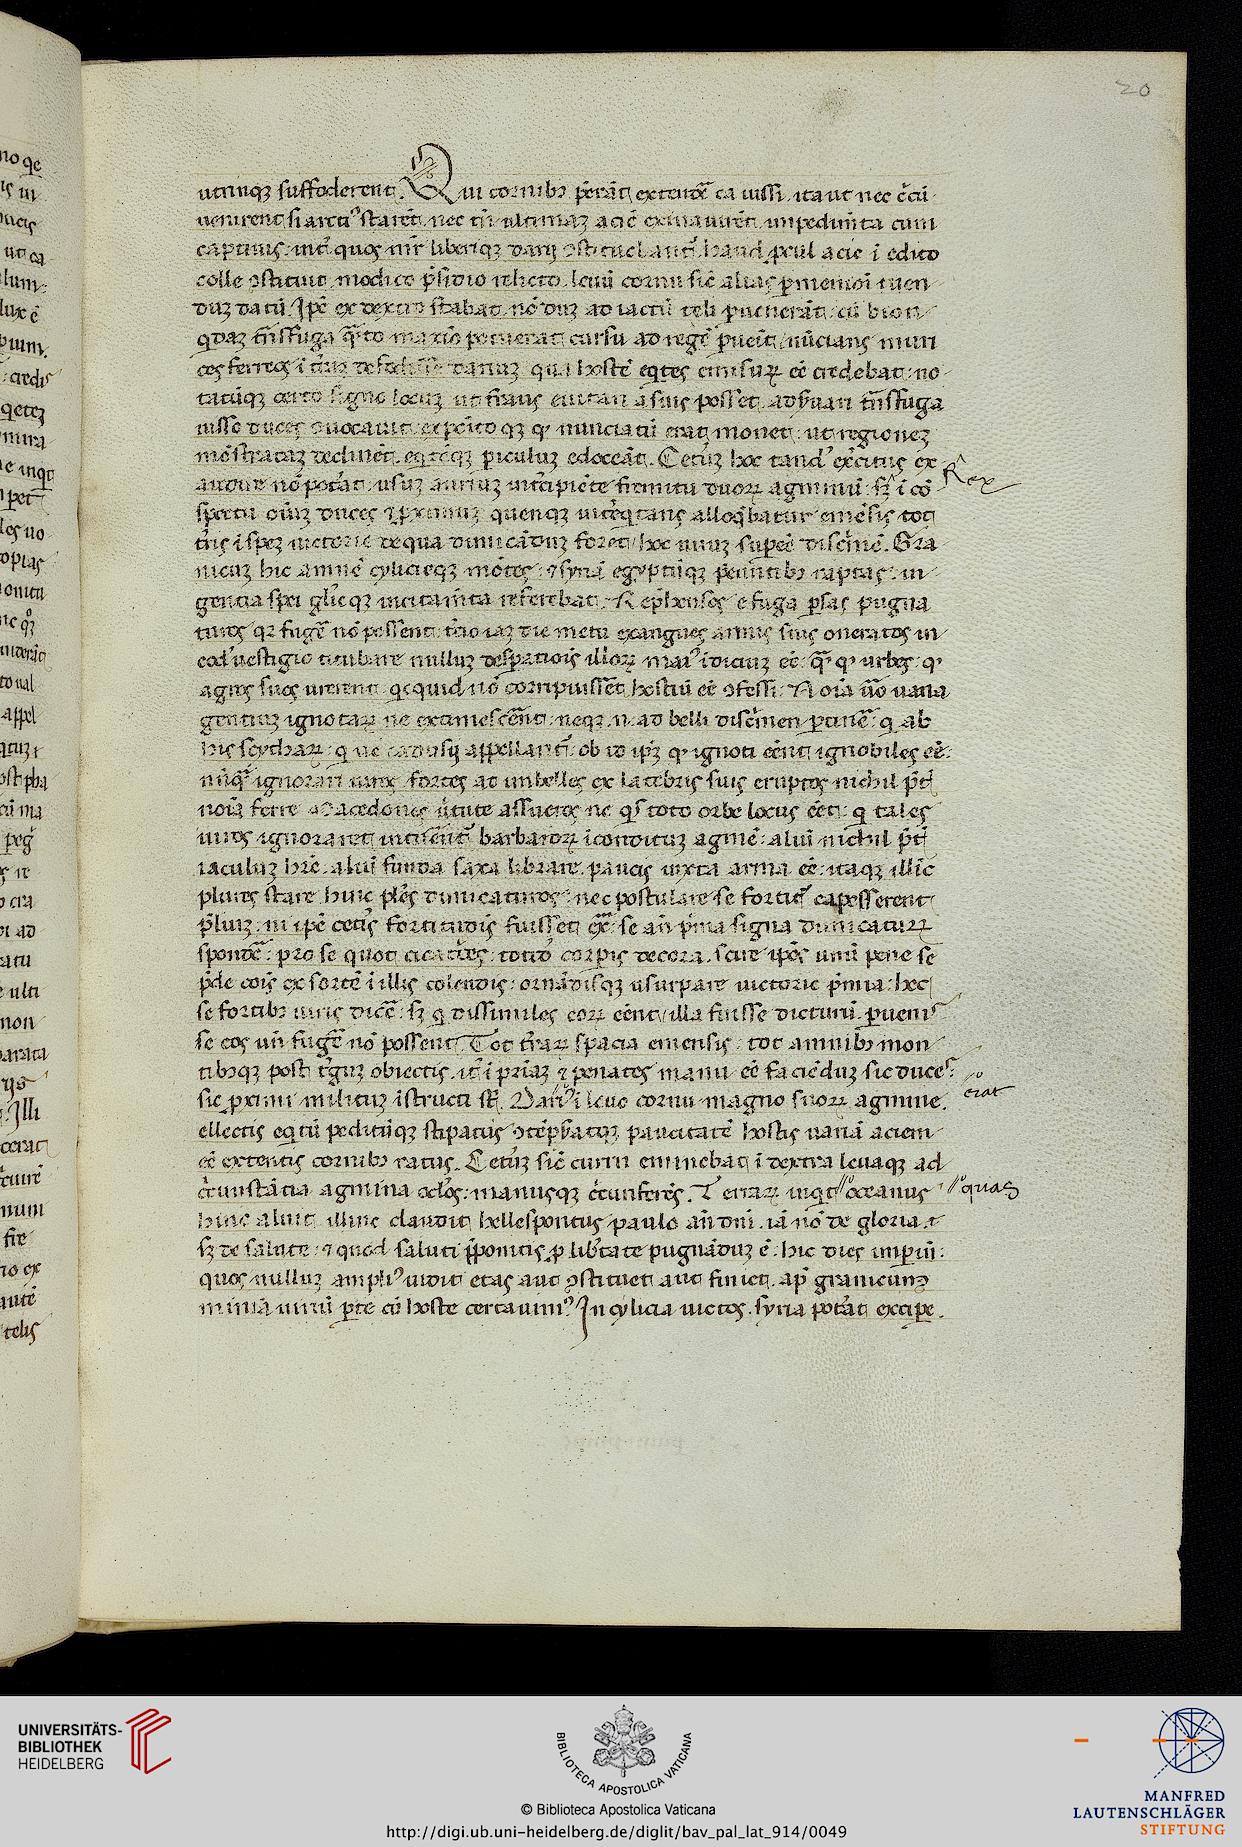 20
utrinqꝫ suffoderent. Qui cornibꝫ p̄erāt extend̄e ea iussi, ita ut nec c̄cū
uenirent si arcti᾽ starēt, nec tn̄ ultimaꝫ aciē exinanirēt, inpedim̄ta cum
captiuis: int̄ quos mr̄ liberiqꝫ darij custodiebant᾽ haud ꝓcul acie ī edito
colle ꝯstituit modico p̄sidio relicto. leuū cornu sic̄ alias ꝑmenioī tuen
duꝫ datū. Ipē ex dextro stabat. nōduꝫ ad iactū teli ꝑuenerāt: cū bion
qdaꝫ tn̄sfuga q̄to maxīo potuerat cursu ad regē ꝑuēit, nūcians muri
ces ferreos ī trāꝫ defodisse dariuꝫ. qua hostē eqtes emisuꝝ eē credebat: no
tatūqꝫ certo signo locuꝫ ut fraus euitari a suis posset. adẜuari tn̄sfuga
iusso duces ꝯuocauit: expōito qꝫ qͩ nunciatū erat monet: ut regioneꝫ
mōstrataꝫ declinēt. eqtēqꝫ ꝑiculuꝫ edoceāt. Cet̄uꝫ hoc tand᾽ ex̄citus ex
audire nō pot̄at: usuꝫ auriuꝫ int̄cipiēte fremitu duoꝝ agminū. sꝫ ī cō
Rex
spectu oīuꝫ duces ⁊ ꝓximuꝫ quenqꝫ int̄eqtans alloqbatur emēsis tot
tr̄is ī speꝫ uictorie de qua dimicāduꝫ foret. hoc unuꝫ sup̄eē disc̄mē. Gra
nicuꝫ hic amnē cylicieqꝫ mōtes: ⁊ syriā egyptūqꝫ p̄eūntibꝫ raptas: in
gentia spei gl̄ieqꝫ incitam̄ta referebat. Rep̄hensos e fuga ꝑsas pugna
turos qꝫ fugē nō possent: t̄cio iaꝫ die metu exangues armis suis oneratos in
eod᾽ uestigio titubare nulluꝫ despatiois illoꝝ mai᾽ īdiciuꝫ eē: q̄ qͩ urbes: qͩ
agros suos urerent: qcquid nō corripuissēt hostiū eē ꝯfessi: Noīa ūo uana
gentiuꝫ ignotaꝝ ne extimescēnt: neqꝫ .n. ad belli disc̄men ꝑtinē: q ab
his scythaꝝ: q ue cadusij appellant᾽ ob id ipꝫ qͩ ignoti eent ignobiles eē:
nūq̄ ignorari uiros fortes at inbelles ex latebris suis erutos nichil p̄t
noīa ferre Macedones ūtute assuetos ne qs toto orbe locus eet: q tales
uiros ignoraret intuerent᾽ barbaroꝝ īconditus agmē: alui nichil p̄t
iaculuꝫ hr̄e: alui funda saxa librare. paucis iuxta arma eē: itaqꝫ illīc
plures stare hinc pl̄es dimicaturos: nec postulare se fortit᾽ capesserent
p̄liuꝫ: ni ipē cetīs fortitudīs fuisset ex̄: se an̄ p̄ma signa dimicatuꝝ
spond̄e: pro se quot cicatr̄es: totid᾽ corꝑis decora. scire ipōs unū pene se
p̄de cois exsortē ī illis colendis: ornādisqꝫ usurpare uictorie p̄mia: hec
se fortibꝫ uiris dic̄e: sꝫ q dissimiles eoꝝ eent, illa fuisse dicturū. ꝑueni᾽
se eos un̄ fuḡe nō possent. Tot tr̄aꝝ spacia emensis: tot amnibꝫ mon
tibꝫqꝫ post t̄guꝫ obiectis. it̄ ī pr̄iaꝫ ⁊ penates manu eē faciēduꝫ sic duces:
sic ꝓximi militum īstructi st̄. Dari᾽ ī leuo cornu magno suoꝝ agmine.
erat
ellectis eqtū peditūqꝫ stipatus ꝯtēpẜatqꝫ paucitatē hostis uanā aciem
eē extentis cornibꝫ ratus. Cet̄uꝫ sic̄ curru eminebat ī dextra leuaqꝫ ad
c̄cunstātia agmina ocl̄os: manusqꝫ c̄cunferēs. Terraꝝ inqt // oceanus
// quas
hinc aluit illinc claudit hellespontus paulo an̄ dn̄i. iā nō de gloria.
sꝫ de salute: ⁊ quod saluti p̄ponitis ꝓ lib̄tate pugnāduꝫ ē: hic dies inꝑiū:
quos nulluꝫ ampli᾽ uidit etas aut ꝯstituet aut finiet. ap᾽ granicunꝫ
minīa uiriū ꝑte cū hoste certauim᾽. In cylicia uictos. syria pot̄at excipe.
UNIVERSITÄTS-
BIBLIOTHEK
HEIDELBERG
BIBLIOTECA APOSTOLICA VATICANA
© Biblioteca Apostolica Vaticana
http://digi.ub.uni-heidelberg.de/diglit/bav_pal_lat_914/0049
MANFRED
LAUTENSCHLÄGER
STIFTUNG